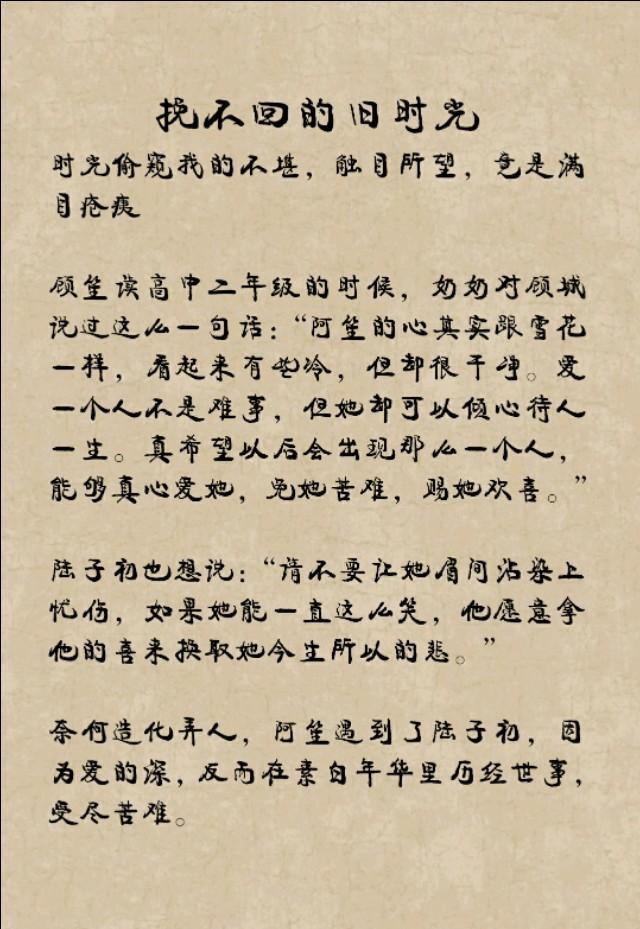 挽不回的旧时光
时光偷窥我的不堪，触目所望，竟是满
目疮痍
顾笙读高中二年级的时候，奶奶对顾城
说过这么一句话：“阿笙的心其实跟雪花
一样，看起来有些冷，但却很干净。爱
一个人不是难事，但她却可以倾心待人
一生。真希望以后会出现那么一个人，
能够真心爱她，免她苦难，赐她欢喜。”
陆子初也想说：“请不要让她眉间沾染上
忧伤，如果她能一直这么笑，他愿意拿
他的喜来换取她今生所以的悲。”
奈何造化弄人，阿笙遇到了陆子初，因
为爱的深，反而在素白年华里历经世事，
受尽苦难。